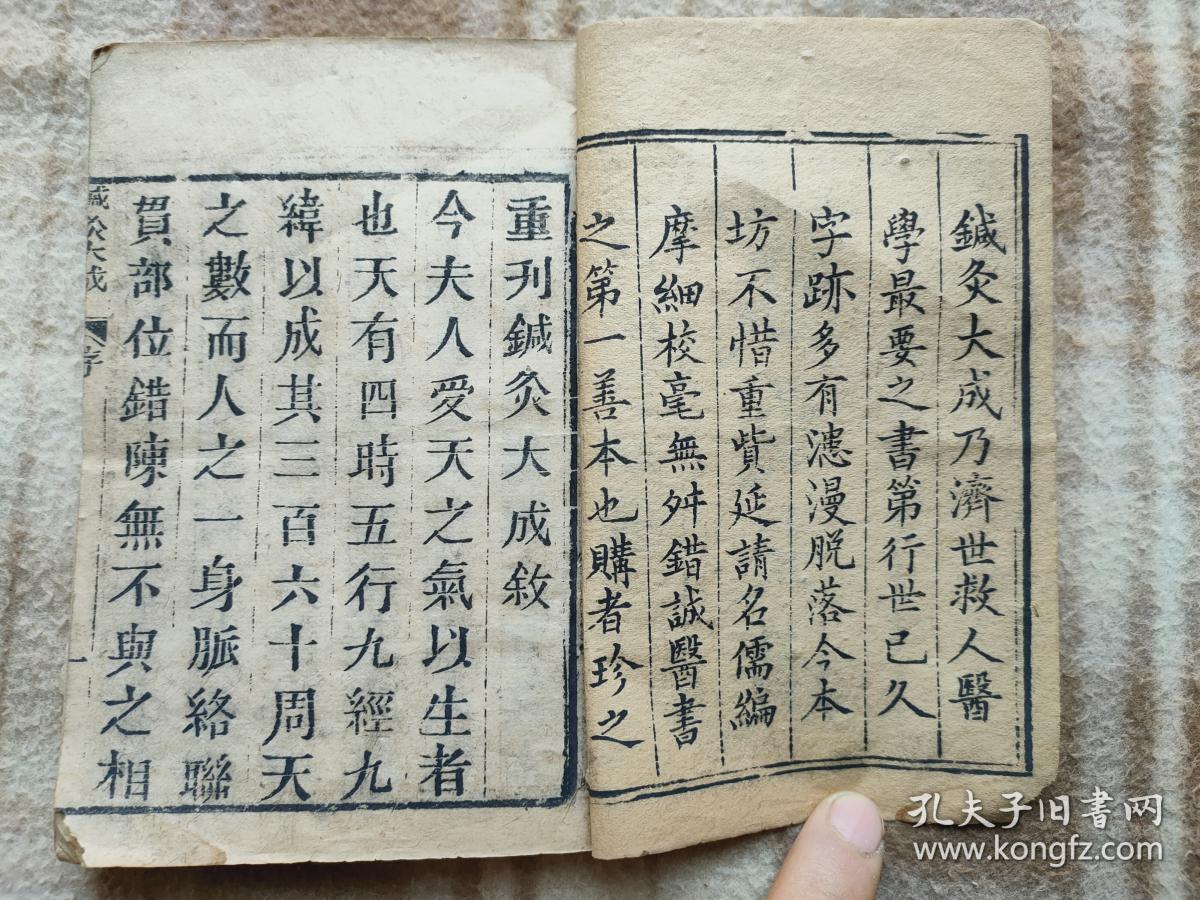 鍼灸大成乃濟世救人醫
學最要之書第行世已久
字跡多有漶漫脫落今本
坊不惜重貲延請名儒編
摩細校毫無舛錯誠醫書
之第一善本也購者珍之
重刋鍼灸大成敘
今夫人受天之氣以生者
也天有四時五行九經九
緯以成其三百六十周天
之數而人之一身脈絡聯
貫部位錯陳無不與之相
鍼灸大成
序
一
孔夫子旧书网
www.kongfz.com